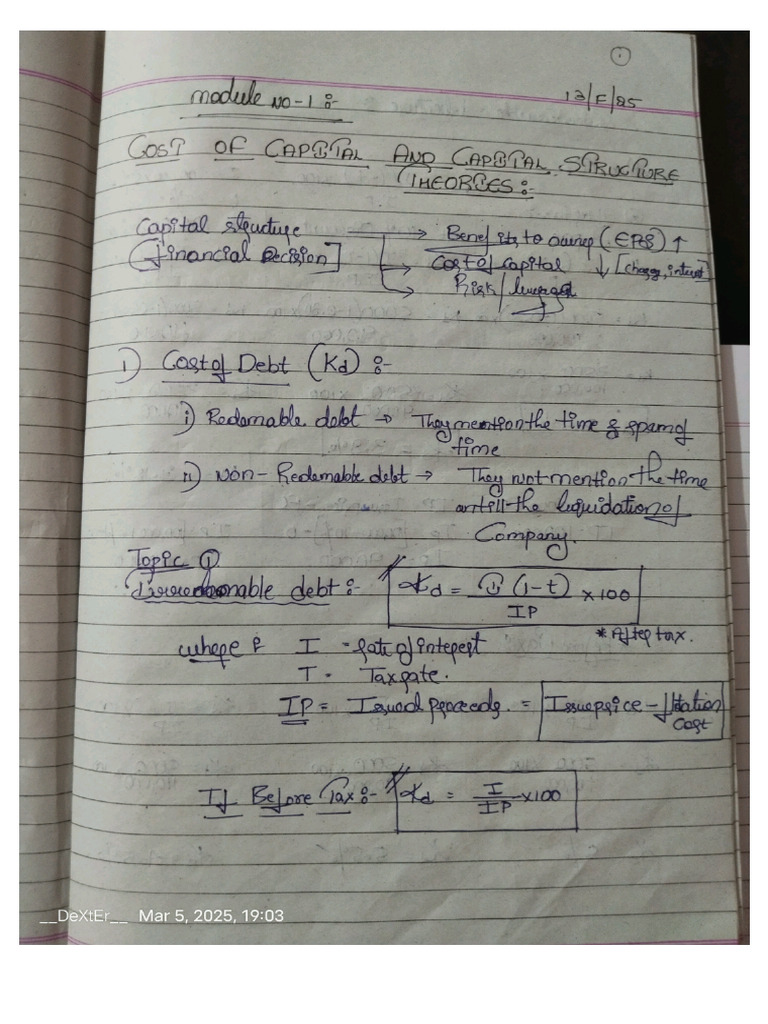 1
Module No-1 :-
13/F/25
COST OF CAPITAL AND CAPITAL STRUCTURE
THEORIES :-
Capital structure → Benefits to owner (EPS) ↑
[Financial Decision] → Cost of capital ↓ [charge, interest]
→ Risk/leverage
1) Cost of Debt (Kd) :-
i) Redemable debt → They mention the time & span of
time
ii) Non-Redemable debt → They not mention the time
until the liquidation of
Company.
Topic 1
debt :- Kd = I (1-t) / IP × 100
* After tax.
where : I - Rate of interest
T - Tax rate.
IP = Issued proceeds = Issue price - flotation
cost
If Before Tax :- Kd = I / IP × 100
__DeXtEr__ Mar 5, 2025, 19:03